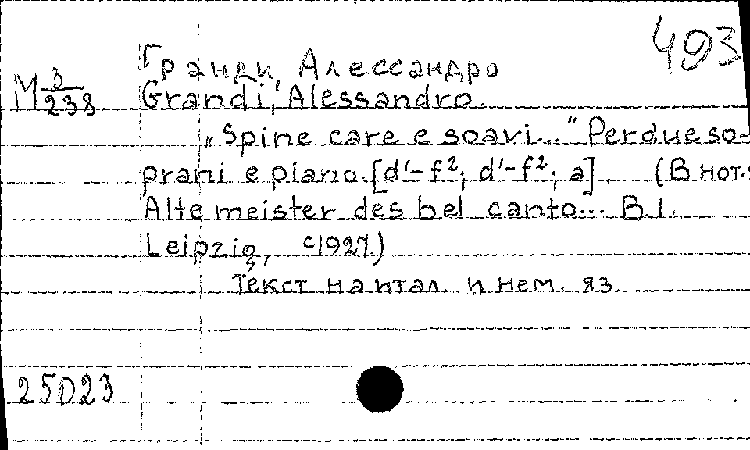 493
Гранди, Алессандро
М 3/238 Grandi, Alessandro.
„Spine care e soavi..." Per due so-
prani e piano. [d'-f²; d'-f²; a] (В нот.
Alte meister des bel canto... B.I.
Leipzig, c1927.)
Текст на итал. и нем. яз.
25023